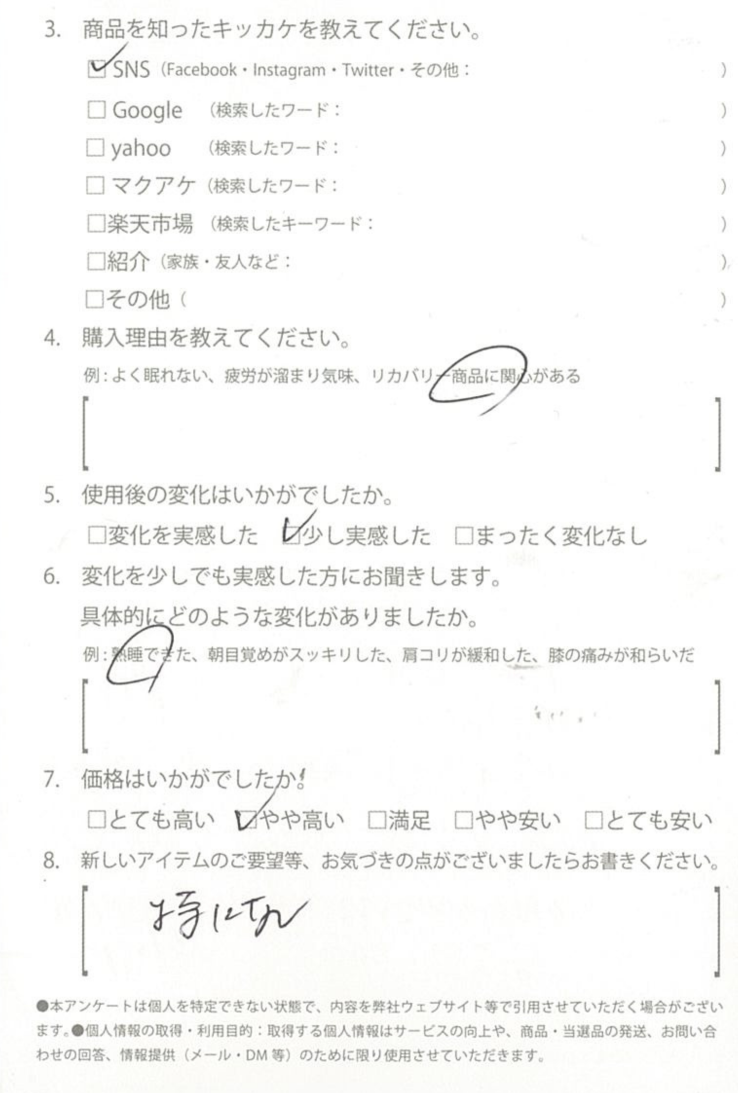 3. 商品を知ったキッカケを教えてください。
☑SNS（Facebook・Instagram・Twitter・その他： ）
□ Google （検索したワード： ）
□ yahoo （検索したワード： ）
□ マクアケ（検索したワード： ）
□楽天市場（検索したキーワード： ）
□紹介（家族・友人など： ）
□その他（ ）
4. 購入理由を教えてください。
例：よく眠れない、疲労が溜まり気味、リカバリー商品に関心がある
5. 使用後の変化はいかがでしたか。
□変化を実感した ☑少し実感した □まったく変化なし
6. 変化を少しでも実感した方にお聞きします。
具体的にどのような変化がありましたか。
例：熟睡できた、朝目覚めがスッキリした、肩コリが緩和した、膝の痛みが和らいだ
7. 価格はいかがでしたか。
□とても高い ☑やや高い □満足 □やや安い □とても安い
8. 新しいアイテムのご要望等、お気づきの点がございましたらお書きください。
特になし
●本アンケートは個人を特定できない状態で、内容を弊社ウェブサイト等で引用させていただく場合がござい
ます。●個人情報の取得・利用目的：取得する個人情報はサービスの向上や、商品・当選品の発送、お問い合
わせの回答、情報提供（メール・DM 等）のために限り使用させていただきます。